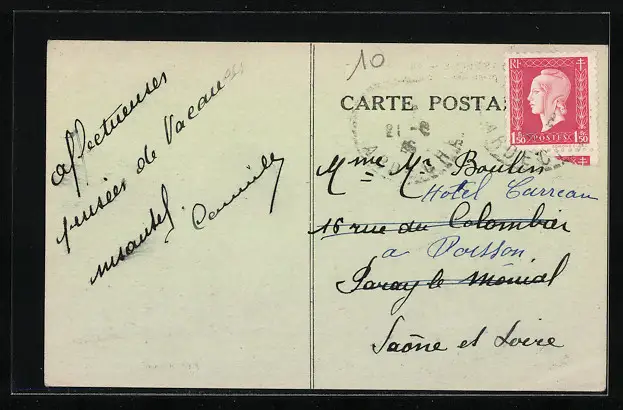 affectueuses
pensées de Vacances
Camille
10
CARTE POSTA
RF
1,50 POSTES 1,50
21 -
ARDECHE
Mme Mr Boulin
Hotel Carreau
16 rue du Colombier
a Poisson
Paray le Monial
Saône et Loire